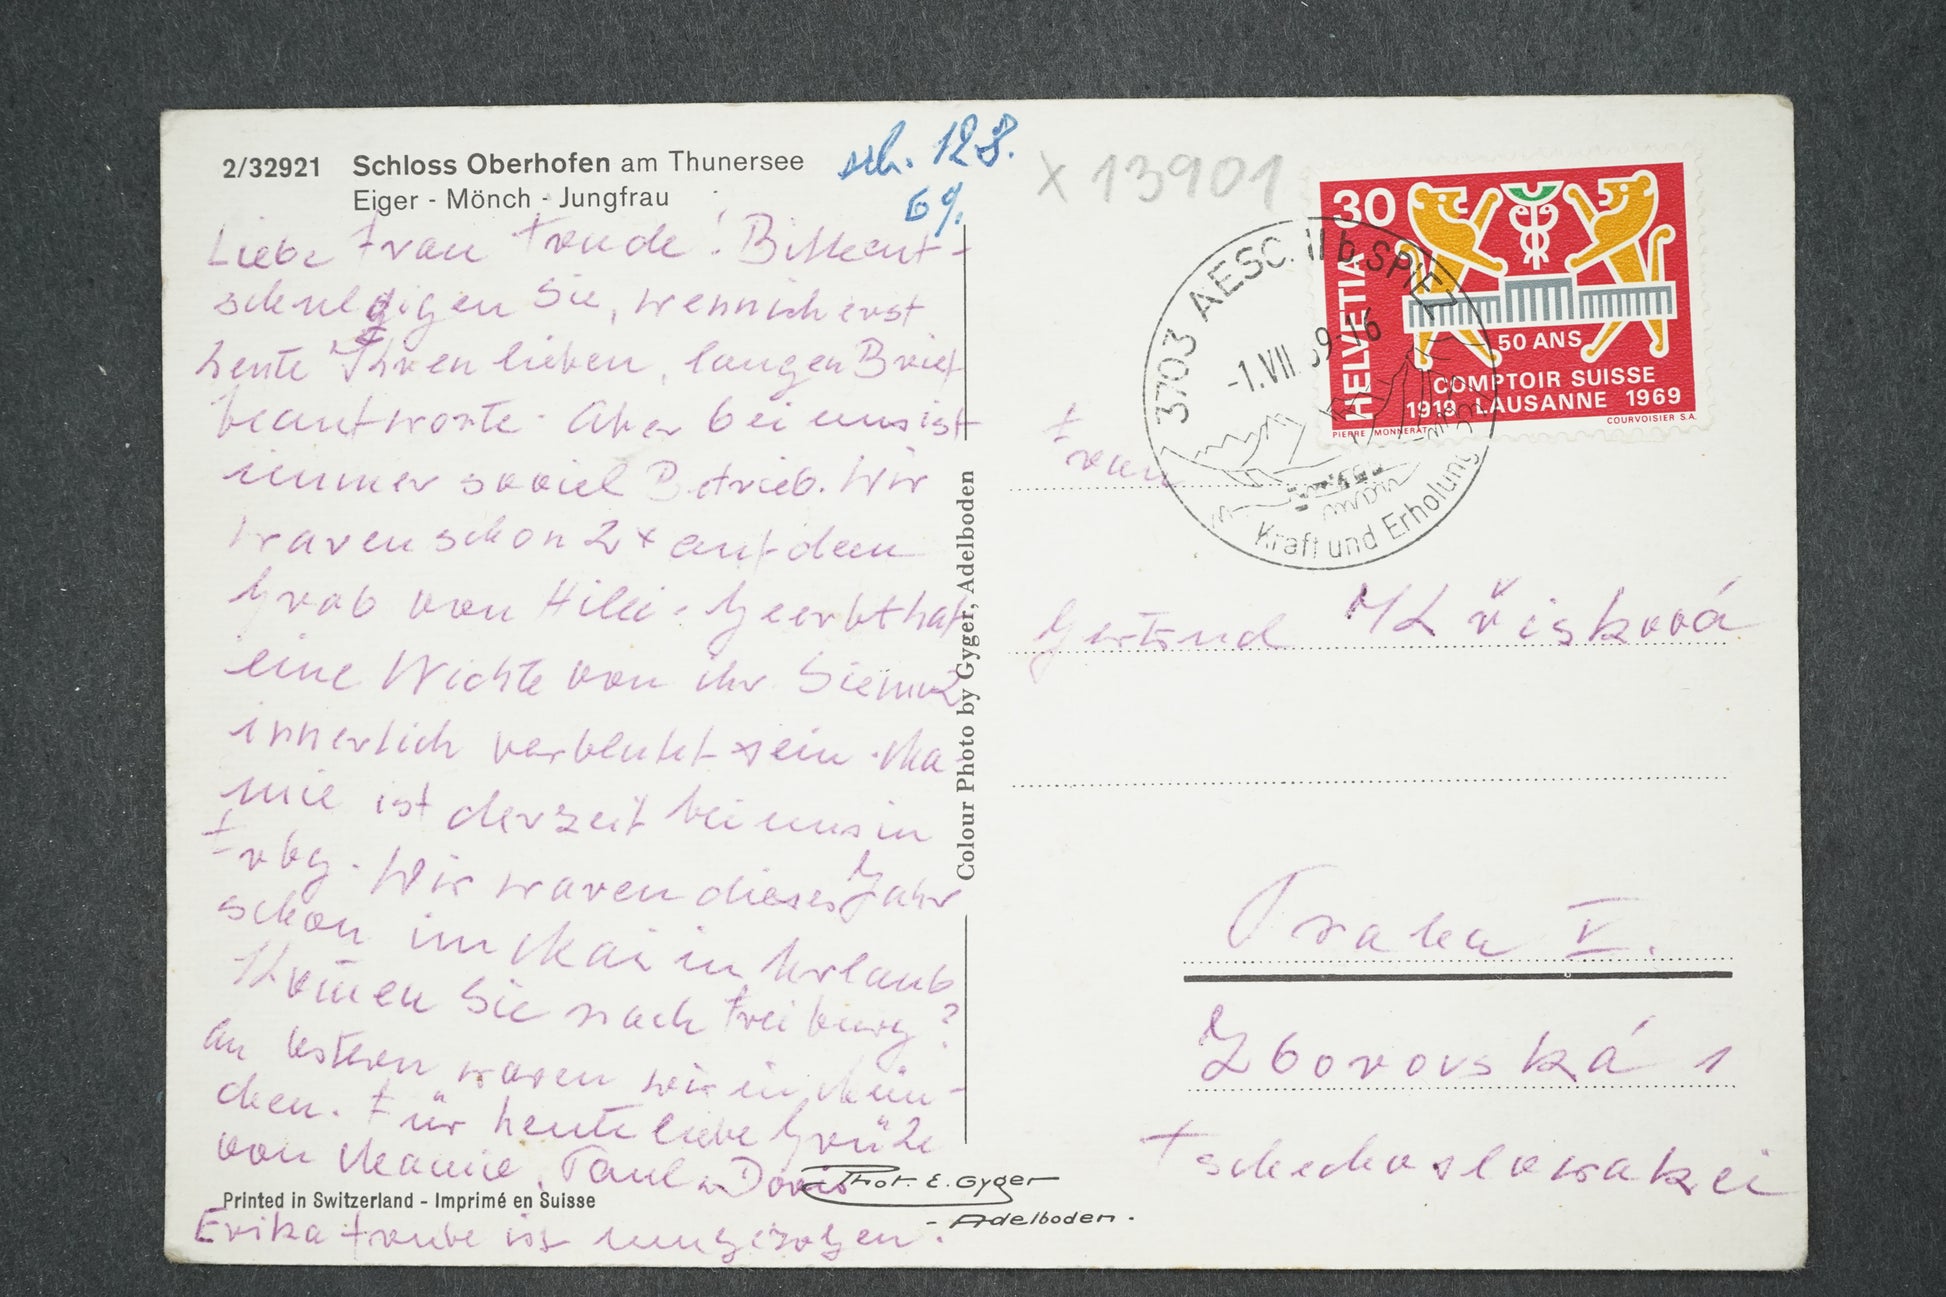 2/32921 Schloss Oberhofen am Thunersee
Eiger - Mönch - Jungfrau
sch. 12 8.
69.
x 13901
Liebe Frau Trude! Bitte ent-
schuldigen Sie, wenn ich erst
heute Ihren lieben, langen Brief
beantworte. Aber bei uns ist
immer soviel Betrieb. Wir
waren schon 2x auf dem
Grab von Hilli. Geerbt hat
eine Nichte von ihr. Sie muß
innerlich verblutet sein. Ma-
mie ist derzeit bei uns in
Frbg. Wir waren dieses Jahr
schon im Mai in Urlaub
Kom̄en Sie nach Freiburg?
An Ostern waren wir in Mün-
chen. Für heute liebe Grüße
von Mamie, Paul u Doris
Erika Traube ist umgezogen.
Printed in Switzerland - Imprimé en Suisse
Phot. E. Gyger
- Adelboden.
Colour Photo by Gyger, Adelboden
HELVETIA
30
50 ANS
COMPTOIR SUISSE
1919 LAUSANNE 1969
PIERRE MONNERAT
COURVOISIER S.A.
3703 AESC II b. SPIEZ
-1.VII 69-16
Kraft und Erholung
Frau
Gertrud Mlčisková
Praha V.
Zborovská 1
Tschechoslowakei